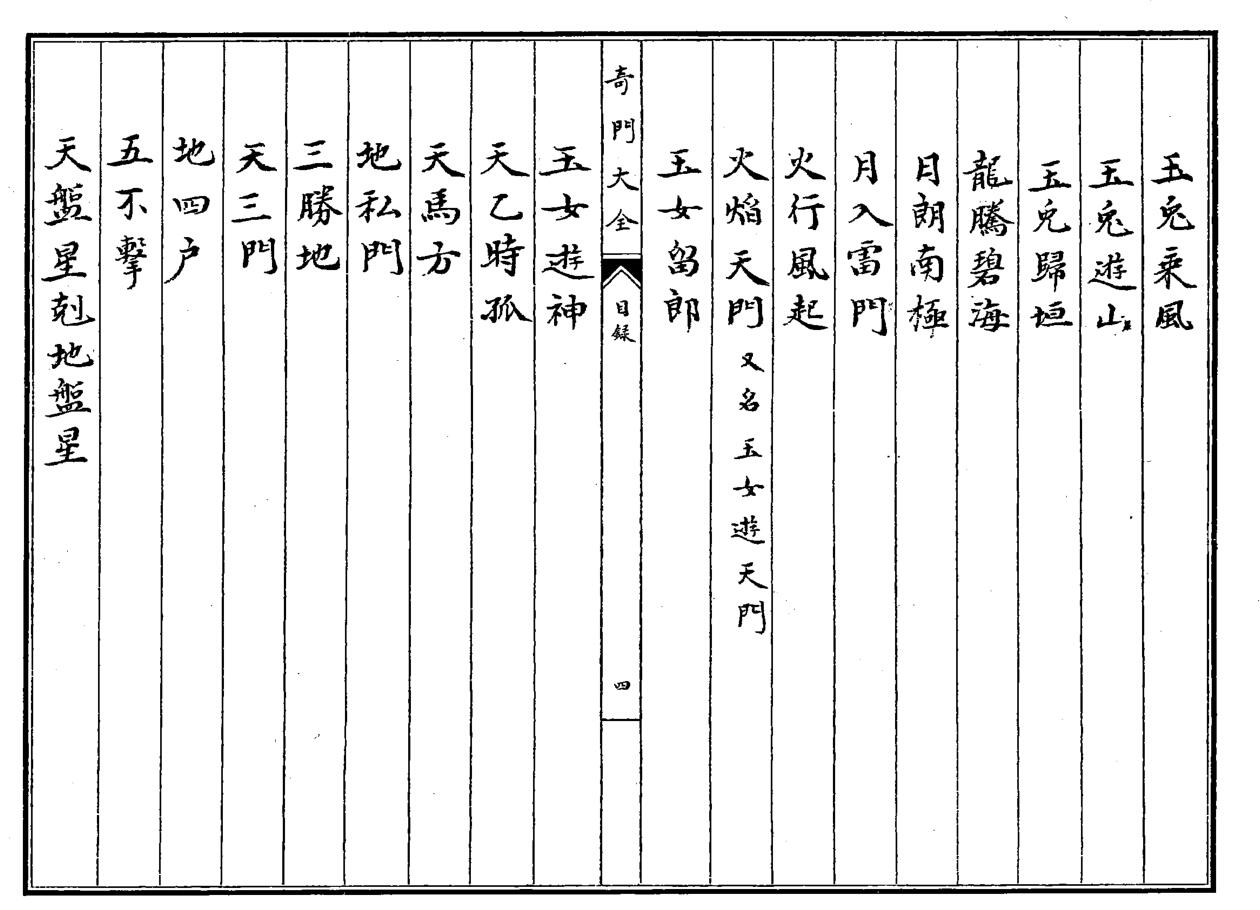 玉兔乘風
玉兔遊山
玉兔歸垣
龍騰碧海
月朗南極
月入雷門
火行風起
火焰天門 又名玉女遊天門
玉女留郎
奇門大全 目録 四
玉女遊神
天乙時孤
天馬方
地私門
三勝地
天三門
地四户
五不擊
天盤星剋地盤星